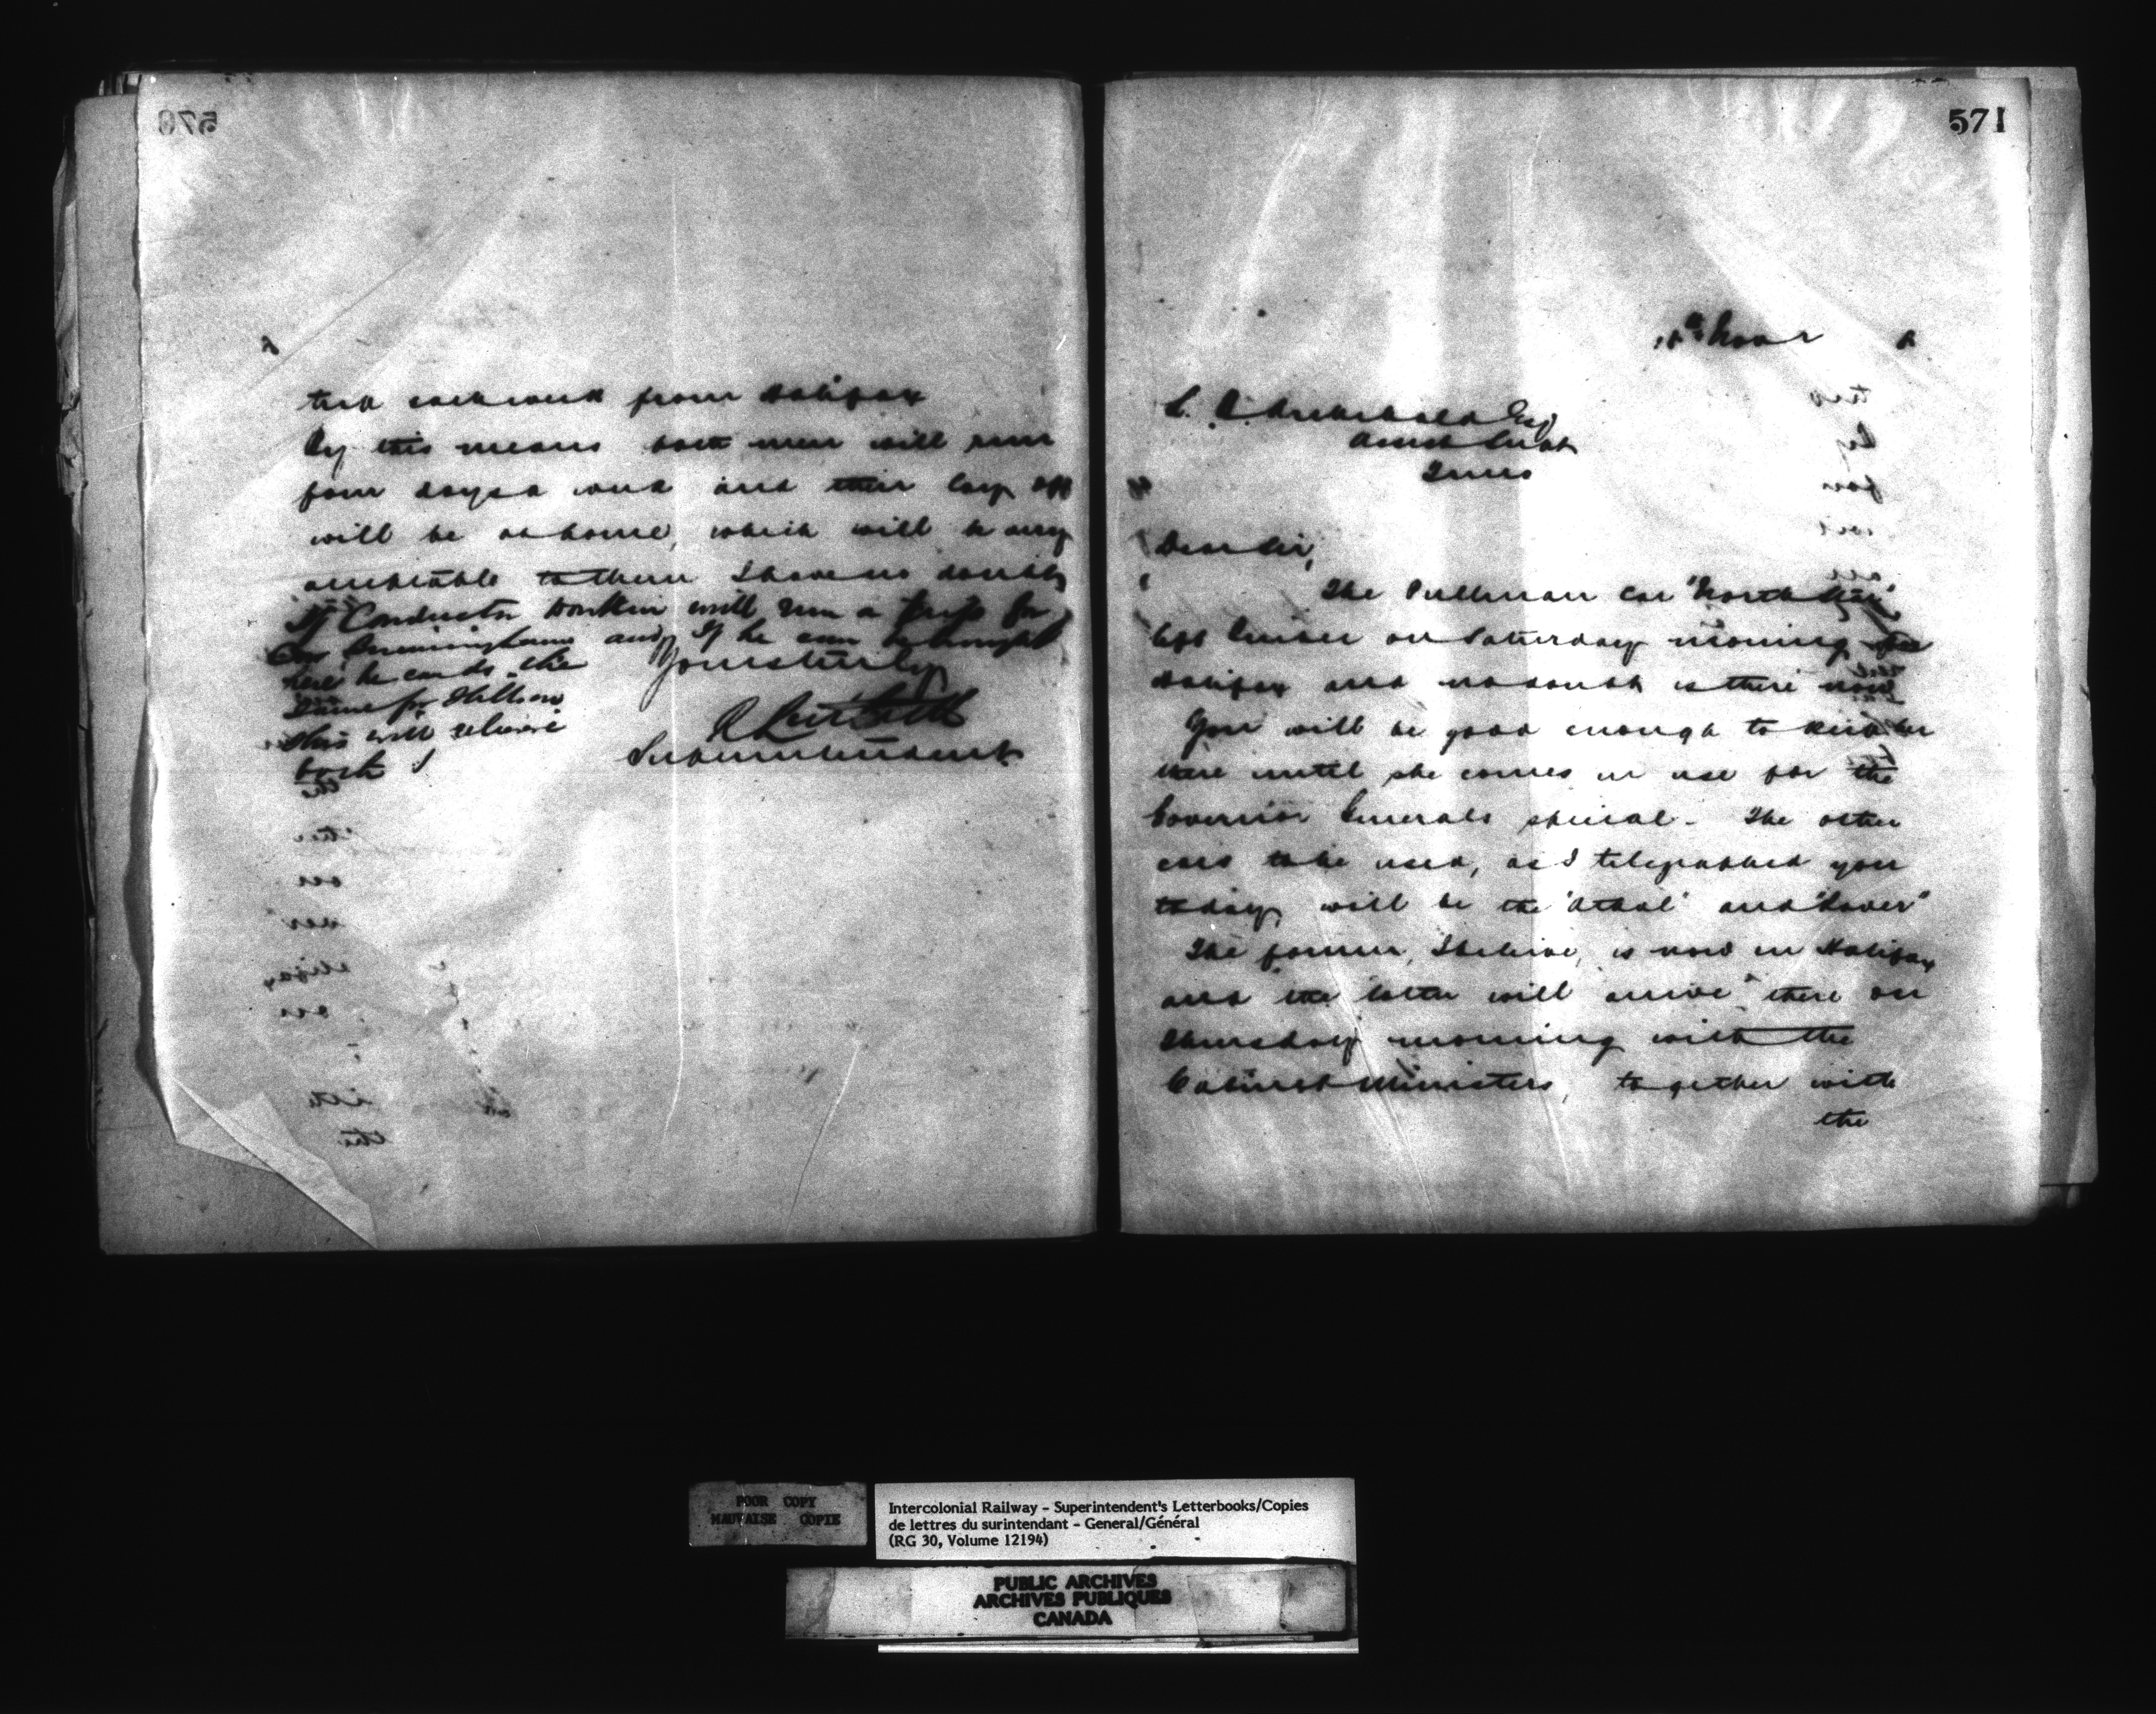 570
trip each week from Halifax
By this means both men will run
four days a week and their lay off
will be at home, which will be very
acceptable to them I have no doubt
If Conductor Donkin will run a trip for
and if he can
here he can do the
same for
this will relieve
both
Yours truly
Superintendent
571
18th Novr 8
Archibald Esq
Asst Supt
Truro
Dear Sir,
The Pullman Car "North Star"
left on Saturday morning for
Halifax and no doubt is there now
You will be good enough to keep her
there until she comes in use for the
Governor Generals special - The other
cars to be used, as I telegraphed you
today, will be the "Athol" and "Dover"
The former, I believe, is now in Halifax
and the latter will arrive there on
Thursday morning with the
Cabinet Ministers, together with
the
POOR COPY
MAUVAISE COPIE
Intercolonial Railway - Superintendent's Letterbooks/Copies
de lettres du surintendant - General/Général
(RG 30, Volume 12194)
PUBLIC ARCHIVES
ARCHIVES PUBLIQUES
CANADA